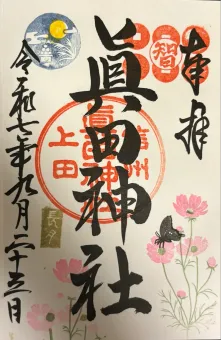 奉拝
智
眞田神社
信州
眞田神社
上田
令和七年九月二十三日